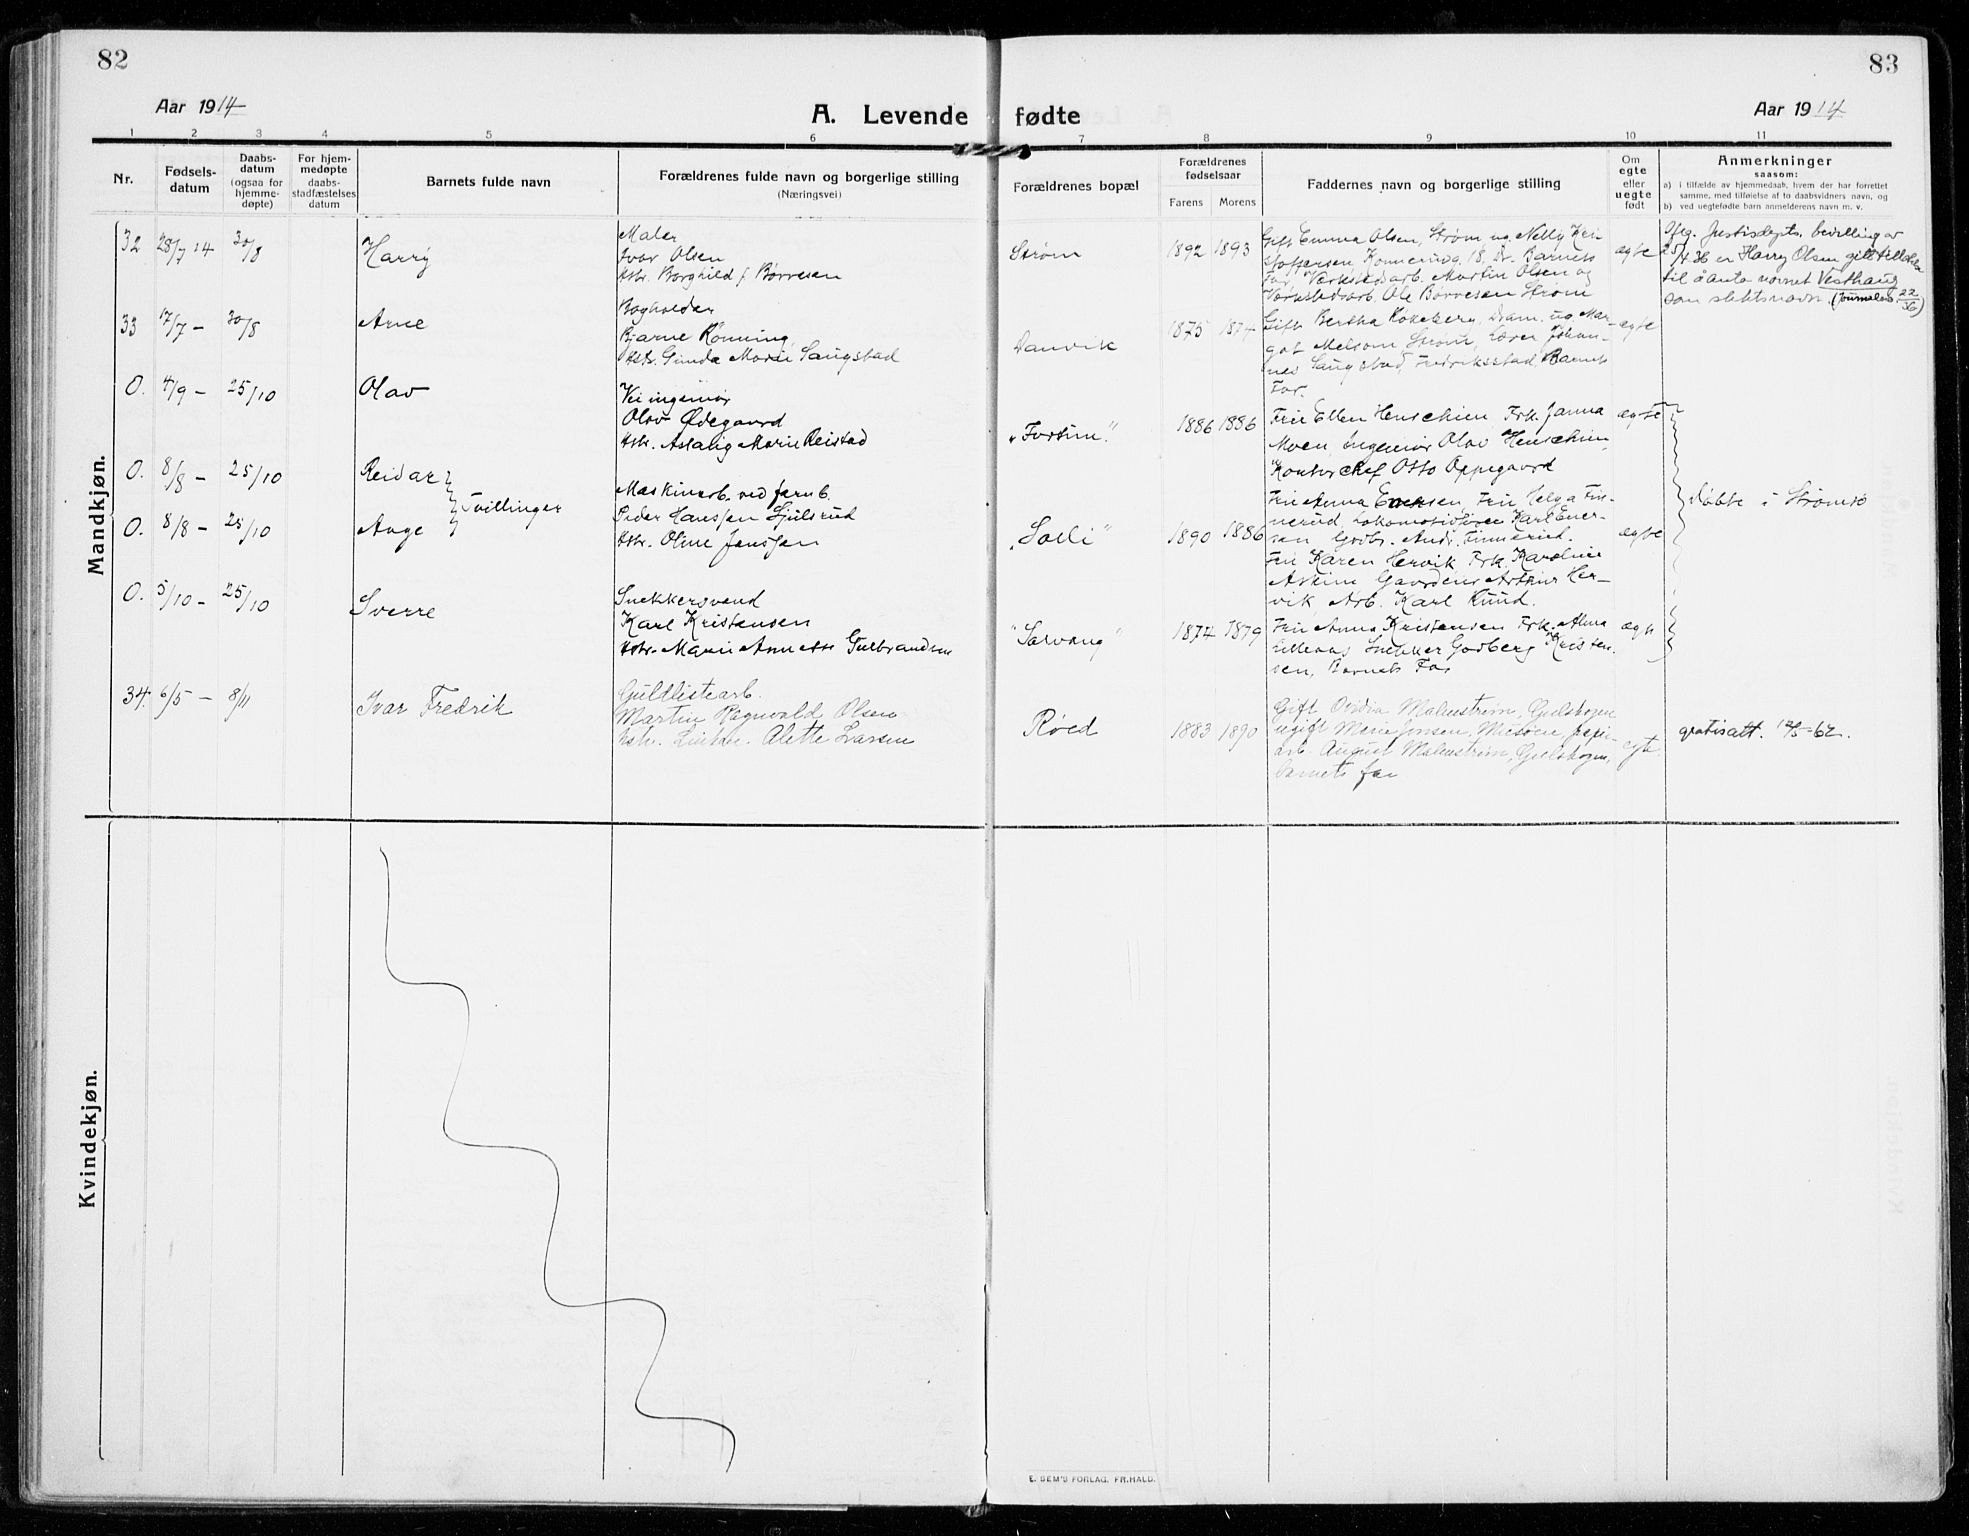 82
83
Aar 1914
A. Levende fødte
Aar 1914
1 2 3 4 5 6 7 8 9 10 11
Nr.
Fødsels-
datum
Daabs-
datum
(ogsaa for
hjemme-
døpte)
For hjem-
medøpte
daabs-
stadfæstelses
datum
Barnets fulde navn
Forældrenes fulde navn og borgerlige stilling
(Næringsvei)
Forældrenes bopæl
Forældrenes
fødselsaar
Farens Morens
Faddernes navn og borgerlige stilling
Om
egte
eller
uegte
født
Anmerkninger
saasom:
a) i tilfælde av hjemmedaab, hvem der har forrettet
samme, med tilføielse af to daabsvidners navn, og
b) ved uegtefødte barn anmelderens navn m. v.
Mandkjøn.
32 28/7 14 30/8
Harry
Maler
Ivar Olsen
Hstr. Borghild f. Børresen
Strøm
1892 1893
Gift Emma Olsen, Strøm og Nelly Kri
stoffersen, Konnerudg. 18, Dr. Barnets
Far Værkstedarb. Martin Olsen og
Værkstedsarb. Ole Børresen Strøm
ægte
Iføg. Justisdepts. bevilling av
25/4 36 er Harry Olsen gitt tillatelse
til å anta navnet Vesthaug
som slektsnavn. (Journalnr. 22/36)
33 17/7 – 30/8
Arne
Bogholder
Bjarne Rønning,
Hstr. Gunda Marie Saugstad
Danvik
1875 1874
Gift Bertha Rokeberg, Dram. og Mar-
got Melsom Strøm, Lærer Johan-
nes Saugstad, Fredriksstad, Barnets
Far.
ægte
0. 4/9 – 25/10
Olav
Veiingeniør
Olav Ødegaard
Hstr. Aslaug Marie Reistad
"Fortun."
1886 1886
Frue Ellen Henschien Frk. Janna
Moen, Ingeniør Olav Henschien,
Kontorchef Otto Oppegaard
ægte
0. 8/8 – 25/10
Reidar
Tvillinger
0. 8/8 – 25/10
Aage
Maskinarb. ved jernb.
Peder Hanssen Ljulsrud
Hstr. Oline Jenssen
"Solli"
1890 1886
Frue Anna Enersen, Frue Helga Fin-
nerud, Lokomotivfører Karl Ener-
sen Godb. Andr. Finnerud.
Fru Karen Hervik Frk. Karoline
Askim Gaardens Arthur Her-
vik, Arb. Karl Ruud.
ægte
Døbte i Strømsø
0. 5/10 – 25/10
Sverre
Snekkersvend
Karl Kristensen
Hstr. Marie Annette Gulbrandsen
"Sorvang"
1874 1879
Frue Anna Kristensen Frk. Alma
Lilleaas Snekker Godberg Kristen-
sen, Barnets Far
ægte
34. 6/5 – 8/11
Ivar Fredrik
Guldlistearb.
Martin Ragnvald Olsen
Hstr. Alette Larsen
Røed
1883 1890
Gift Ovidia Malmstrøm, Gulskogen,
ugift Marie Jensen, Musøen, papir-
arb. August Malmstrøm, Gulskogen,
barnets far
egte
gratisatt. 12/5–62.
Kvindekjøn.
E. SEM'S FORLAG, FR.HALD.